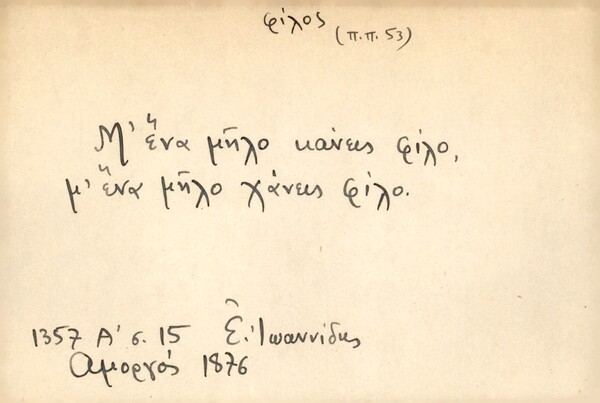 φίλος (π.π. 53)
Μ' ἕνα μῆλο κάνεις φίλο,
μ' ἕνα μῆλο χάνεις φίλο.
1357 Α' σ. 15 Ε. Ἰωαννίδης
Αμοργός 1876